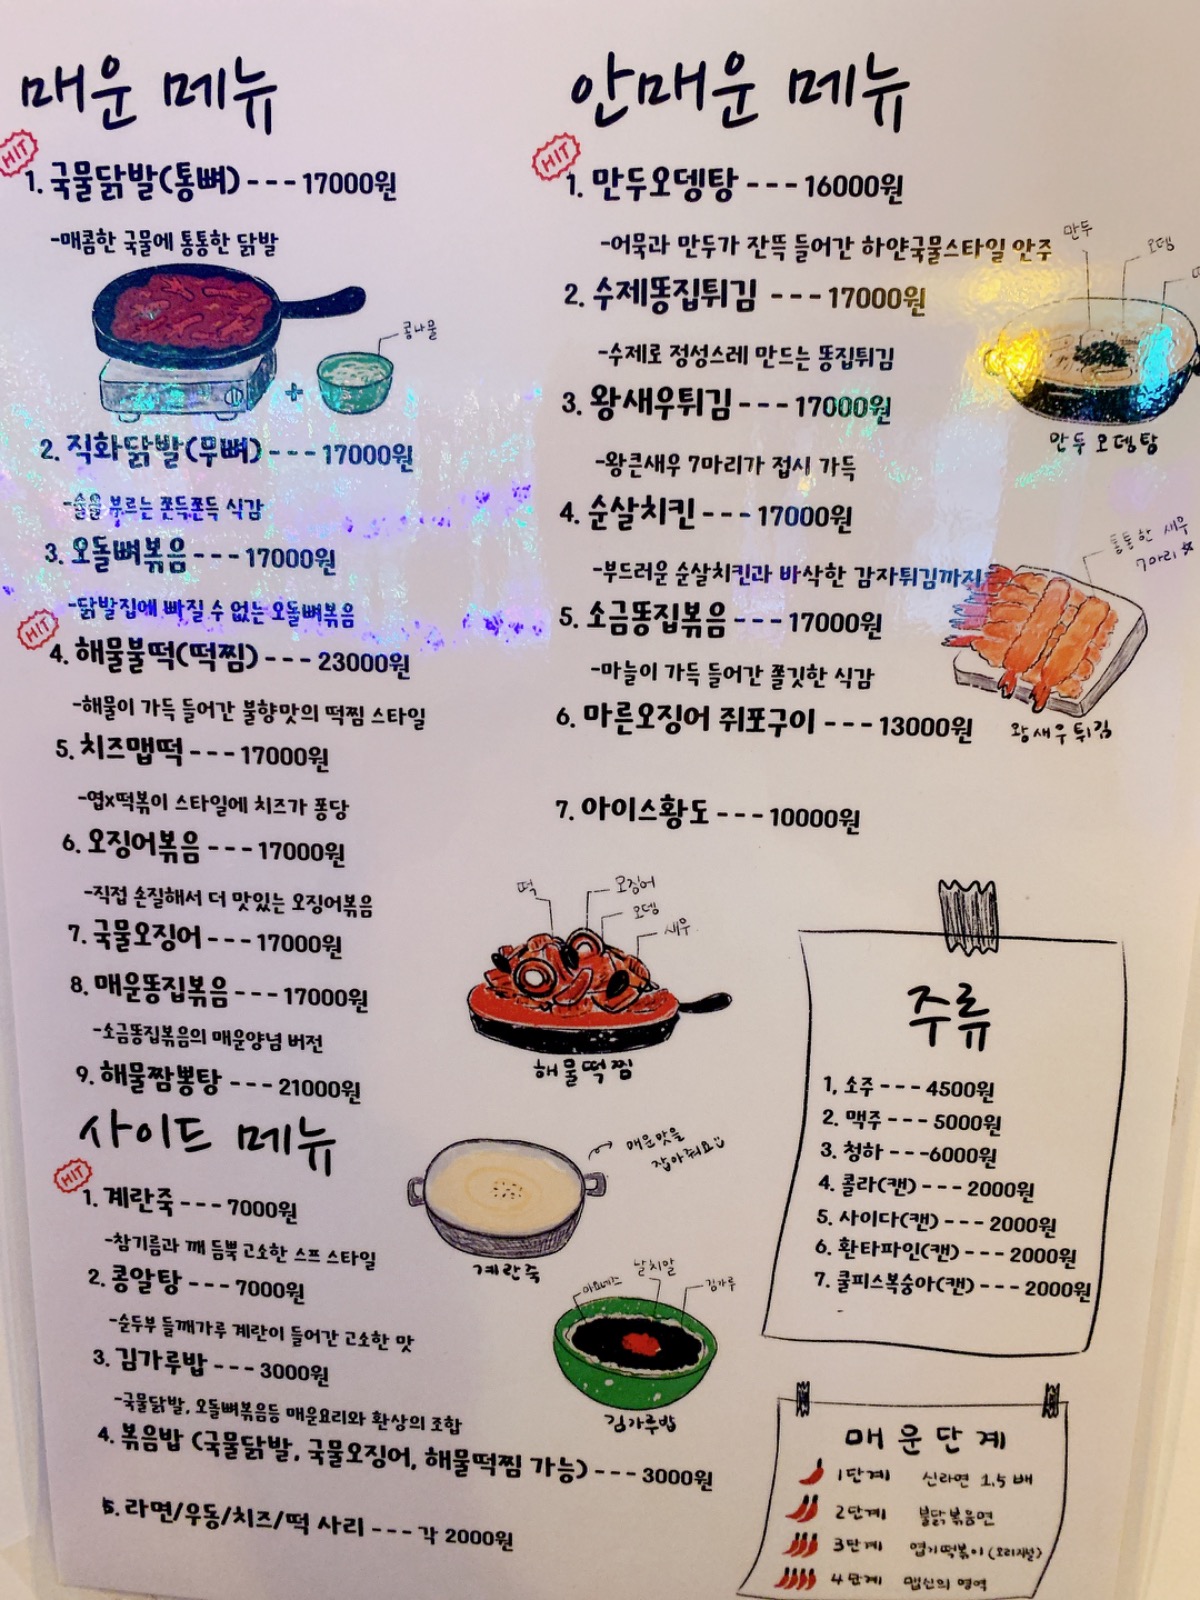 매운 메뉴
HIT
1. 국물닭발(통뼈) --- 17000원
-매콤한 국물에 통통한 닭발
콩나물
+
2. 직화닭발(무뼈) --- 17000원
-술을 부르는 쫀득쫀득 식감
3. 오돌뼈볶음 --- 17000원
-닭발집에 빠질 수 없는 오돌뼈볶음
HIT
4. 해물불떡(떡찜) --- 23000원
-해물이 가득 들어간 불향맛의 떡찜 스타일
5. 치즈맵떡 --- 17000원
-엽x떡볶이 스타일에 치즈가 퐁당
6. 오징어볶음 --- 17000원
-직접 손질해서 더 맛있는 오징어볶음
7. 국물오징어 --- 17000원
8. 매운똥집볶음 --- 17000원
-소금똥집볶음의 매운양념 버전
9. 해물짬뽕탕 --- 21000원
떡
오징어
오뎅
새우
해물떡찜
사이드 메뉴
HIT
1. 계란죽 --- 7000원
-참기름과 깨 듬뿍 고소한 스프 스타일
2. 콩알탕 --- 7000원
-순두부 들깨가루 계란이 들어간 고소한 맛
3. 김가루밥 --- 3000원
-국물닭발, 오돌뼈볶음등 매운요리와 환상의 조합
4. 볶음밥 (국물닭발, 국물오징어, 해물떡찜 가능) --- 3000원
5. 라면/우동/치즈/떡 사리 --- 각 2000원
매운맛을
잡아줘요
계란죽
마요네즈
날치알
김가루
김가루밥
안매운 메뉴
HIT
1. 만두오뎅탕 --- 16000원
-어묵과 만두가 잔뜩 들어간 하얀국물스타일 안주
만두
오뎅
만두 오뎅탕
2. 수제똥집튀김 --- 17000원
-수제로 정성스레 만드는 똥집튀김
3. 왕새우튀김 --- 17000원
-왕큰새우 7마리가 접시 가득
4. 순살치킨 --- 17000원
-부드러운 순살치킨과 바삭한 감자튀김까지
통통한 새우
7마리☆
왕새우튀김
5. 소금똥집볶음 --- 17000원
-마늘이 가득 들어간 쫄깃한 식감
6. 마른오징어 쥐포구이 --- 13000원
7. 아이스황도 --- 10000원
주류
1, 소주 --- 4500원
2. 맥주 --- 5000원
3. 청하 ---6000원
4. 콜라(캔) --- 2000원
5. 사이다(캔) --- 2000원
6. 환타파인(캔) --- 2000원
7. 쿨피스복숭아(캔) --- 2000원
매운단계
1단계 신라면 1.5배
2단계 불닭볶음면
3단계 엽기떡볶이 (오리지널)
4단계 맵신의 영역